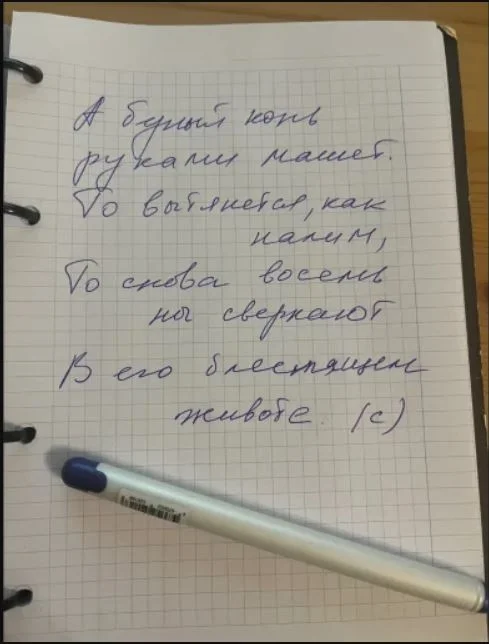 А бупый конь
руками машет.
То вытянется, как
налим,
То снова восемь
ног сверкают
В его блестящем
животе. (с)